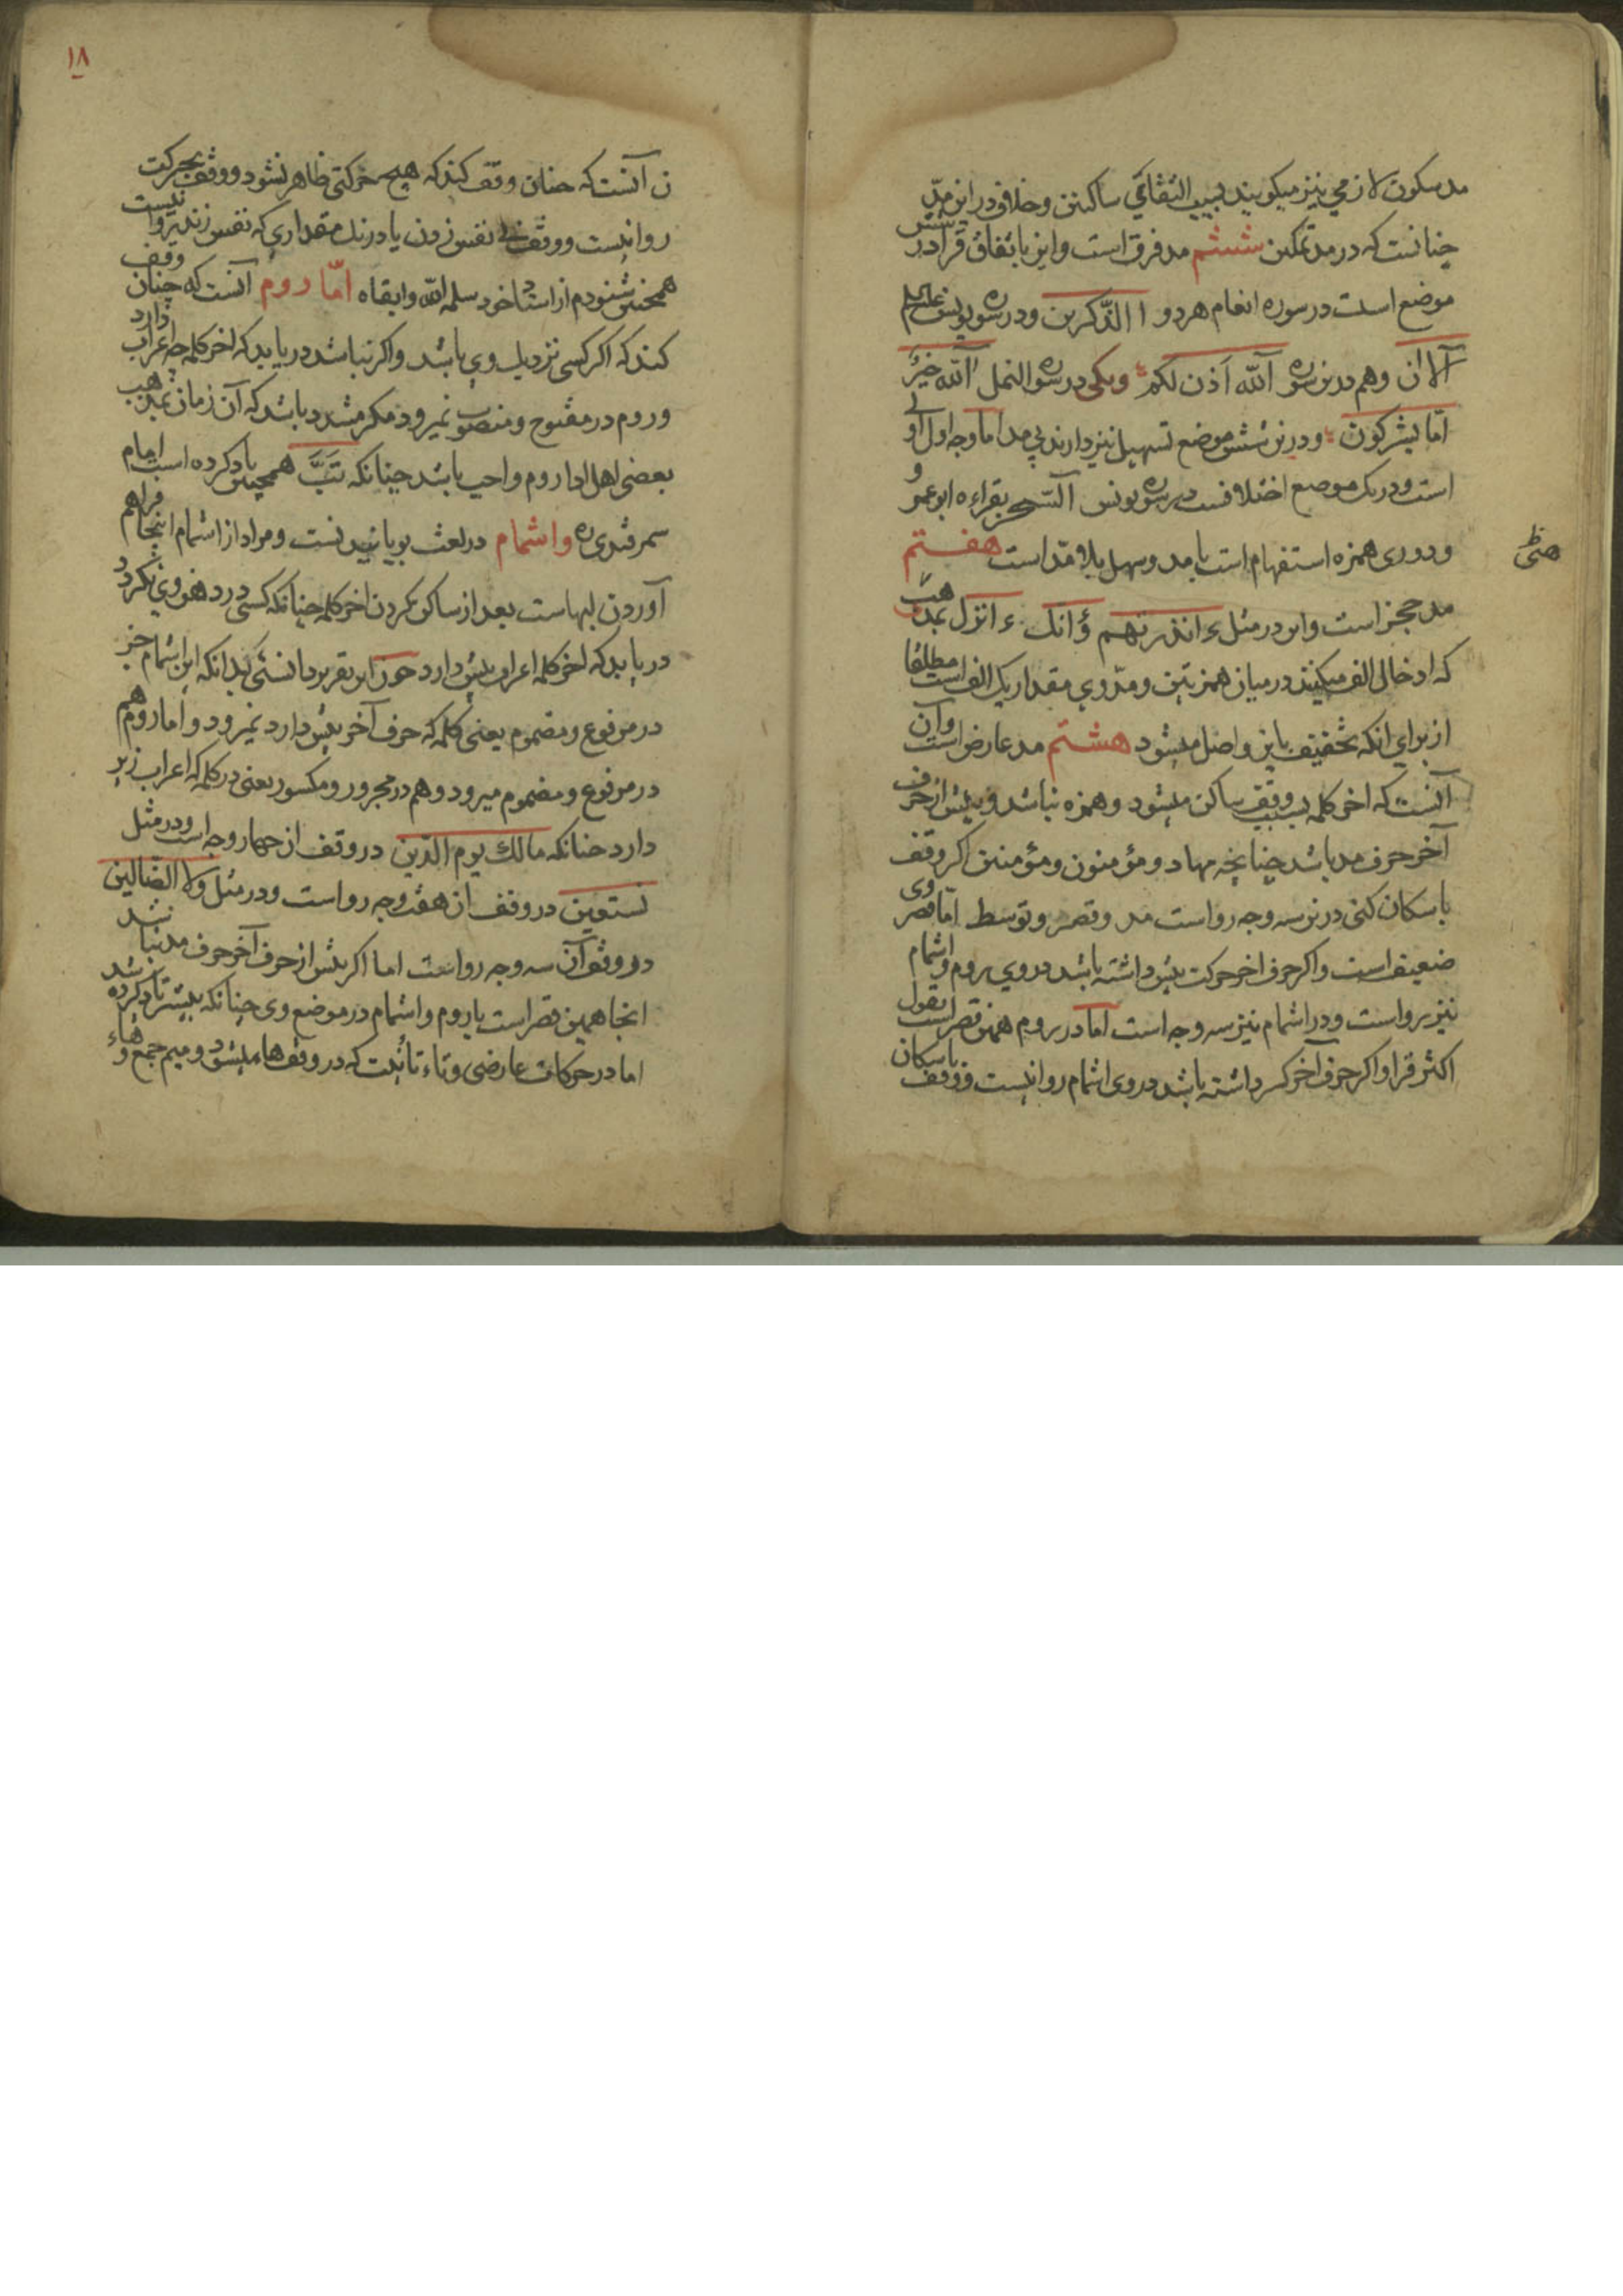 مد سکون لازمی نیز میکویند بسبب التقای ساکنین و خلاف در این مدّ
چنانست که در مد تمکین ششم مد فرق است و این باتفاق قرا در شش
موضع است در سوره انعام هر دو ءآلذّکرین و در سوره یونس علیه السلم
آلان و هم درین سوره آلله اذن لکم و یکی در سوره النمل آلله خیر
امّا یشرکون و درین شش موضع تسهیل نیز دارند بی مد اما وجه اول اولی
است و در یک موضع اختلافست در سوره یونس آلسّحر بقراءه ابو عمرو
و دوری همزه استفهام است با مد و سهل بلا مدّ است هفتم
مد حجز است و این در مثل ءانذرتهم ؤانک ءانزل بمذهب
که ادخال الف میکنند در میان همزتین و مدّ وی مقدار یک الف است مطلقا
از برای انکه تخفیف باین واصل میشود هشتم مد عارض است و آن
آنست که اخر کلمه بسبب وقف ساکن میشود و همزه نباشد و پیش از حرف
آخر حرف مد باشد چنانچه مهاد و مؤمنون و مؤمنین اکر وقف
باسکان کنی درین سه وجه رواست مد و قصر و توسط امّا قصر وی
ضعیف است و اکر حرف اخر حرکت پیش داشته باشد در وی روم و اشمام
نیز رواست و در اشمام نیز سه وجه است اما در روم همین قصر است بقول
اکثر قرا و اکر حرف آخر کسر داشته باشد در وی اشمام روا نیست و وقف باسکان
۱۸
ن آنست که چنان وقف کند که هیچ حرکتی ظاهر نشود و وقف بحرکت
روا نیست و وقف بی نفس زدن یا درنک مقداری که نفس زند روا نیست
همچنین شنودم از استاد خود سلمه الله و ابقاه امّا روم آنست که چنان وقف
کند که اکر کسی نزدیک وی باشد و اکر نباشد دریابد که اخر کلمه چه اعراب دارد
و روم در مفتوح و منصوب نمیرود مکر مشدد باشد که آن زمان بمذهب
بعضی اهل ادا روم واجب باشد چنانکه تَبَّ همچنین یاد کرده است امام
سمرقندی ره و اشمام در لغت بویانیدنست و مراد از اشمام اینجا فراهم
آوردن لبهاست بعد از ساکن کردن اخر کلمه چنانکه کسی در دهن وی نکرد
دریابد که اخر کلمه اعراب پیش دارد چون این تقریر دانستی بدانکه این اشمام جز
در مرفوع و مضموم یعنی کلمه که حرف آخر پیش دارد نمیرود و اما روم هم
در مرفوع و مضموم میرود و هم در مجرور و مکسور یعنی در کلمه که اعراب زیر
دارد چنانکه مالک یوم الدّین در وقف از چهار وجه است و در مثل
نستعین در وقف از هفت وجه رواست و در مثل ولا الضّالین
در وقف آن سه وجه رواست اما اکر پیش از حرف آخر حرف مد نباشد
انجا همین قصر است با روم و اشمام در موضع وی چنانکه پیشتر یاد کرده شد
اما در حرکات عارضی و تاء تانیث که در وقف هاء میشود و میم جمع و هاء